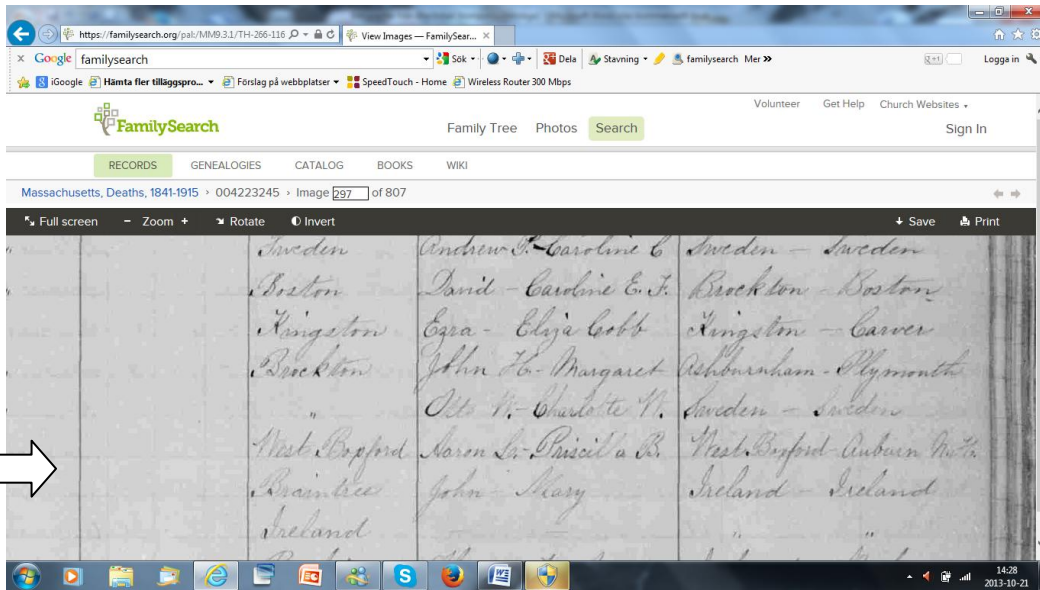 https://familysearch.org/pal:/MM9.3.1/TH-266-116
View Images — FamilySear...
Google familysearch Sök Dela Stavning familysearch Mer » Logga in
iGoogle Hämta fler tilläggspro... Förslag på webbplatser SpeedTouch - Home Wireless Router 300 Mbps
Volunteer Get Help Church Websites
FamilySearch Family Tree Photos Search Sign In
RECORDS GENEALOGIES CATALOG BOOKS WIKI
Massachusetts, Deaths, 1841-1915 › 004223245 › Image 297 of 807
Full screen − Zoom + Rotate Invert Save Print
Sweden Andrew P. - Caroline C Sweden — Sweden
Boston David - Caroline E. F. Brockton - Boston
Kingston Ezra - Eliza Cobb Kingston — Carver
Brockton John H. - Margaret Ashburnham - Plymouth
" Otto W. - Charlotte W. Sweden - Sweden
West Boxford Aaron - Priscilla B. West Boxford - Auburn
Braintree John - Mary Ireland - Ireland
Ireland — — " "
14:28
2013-10-21